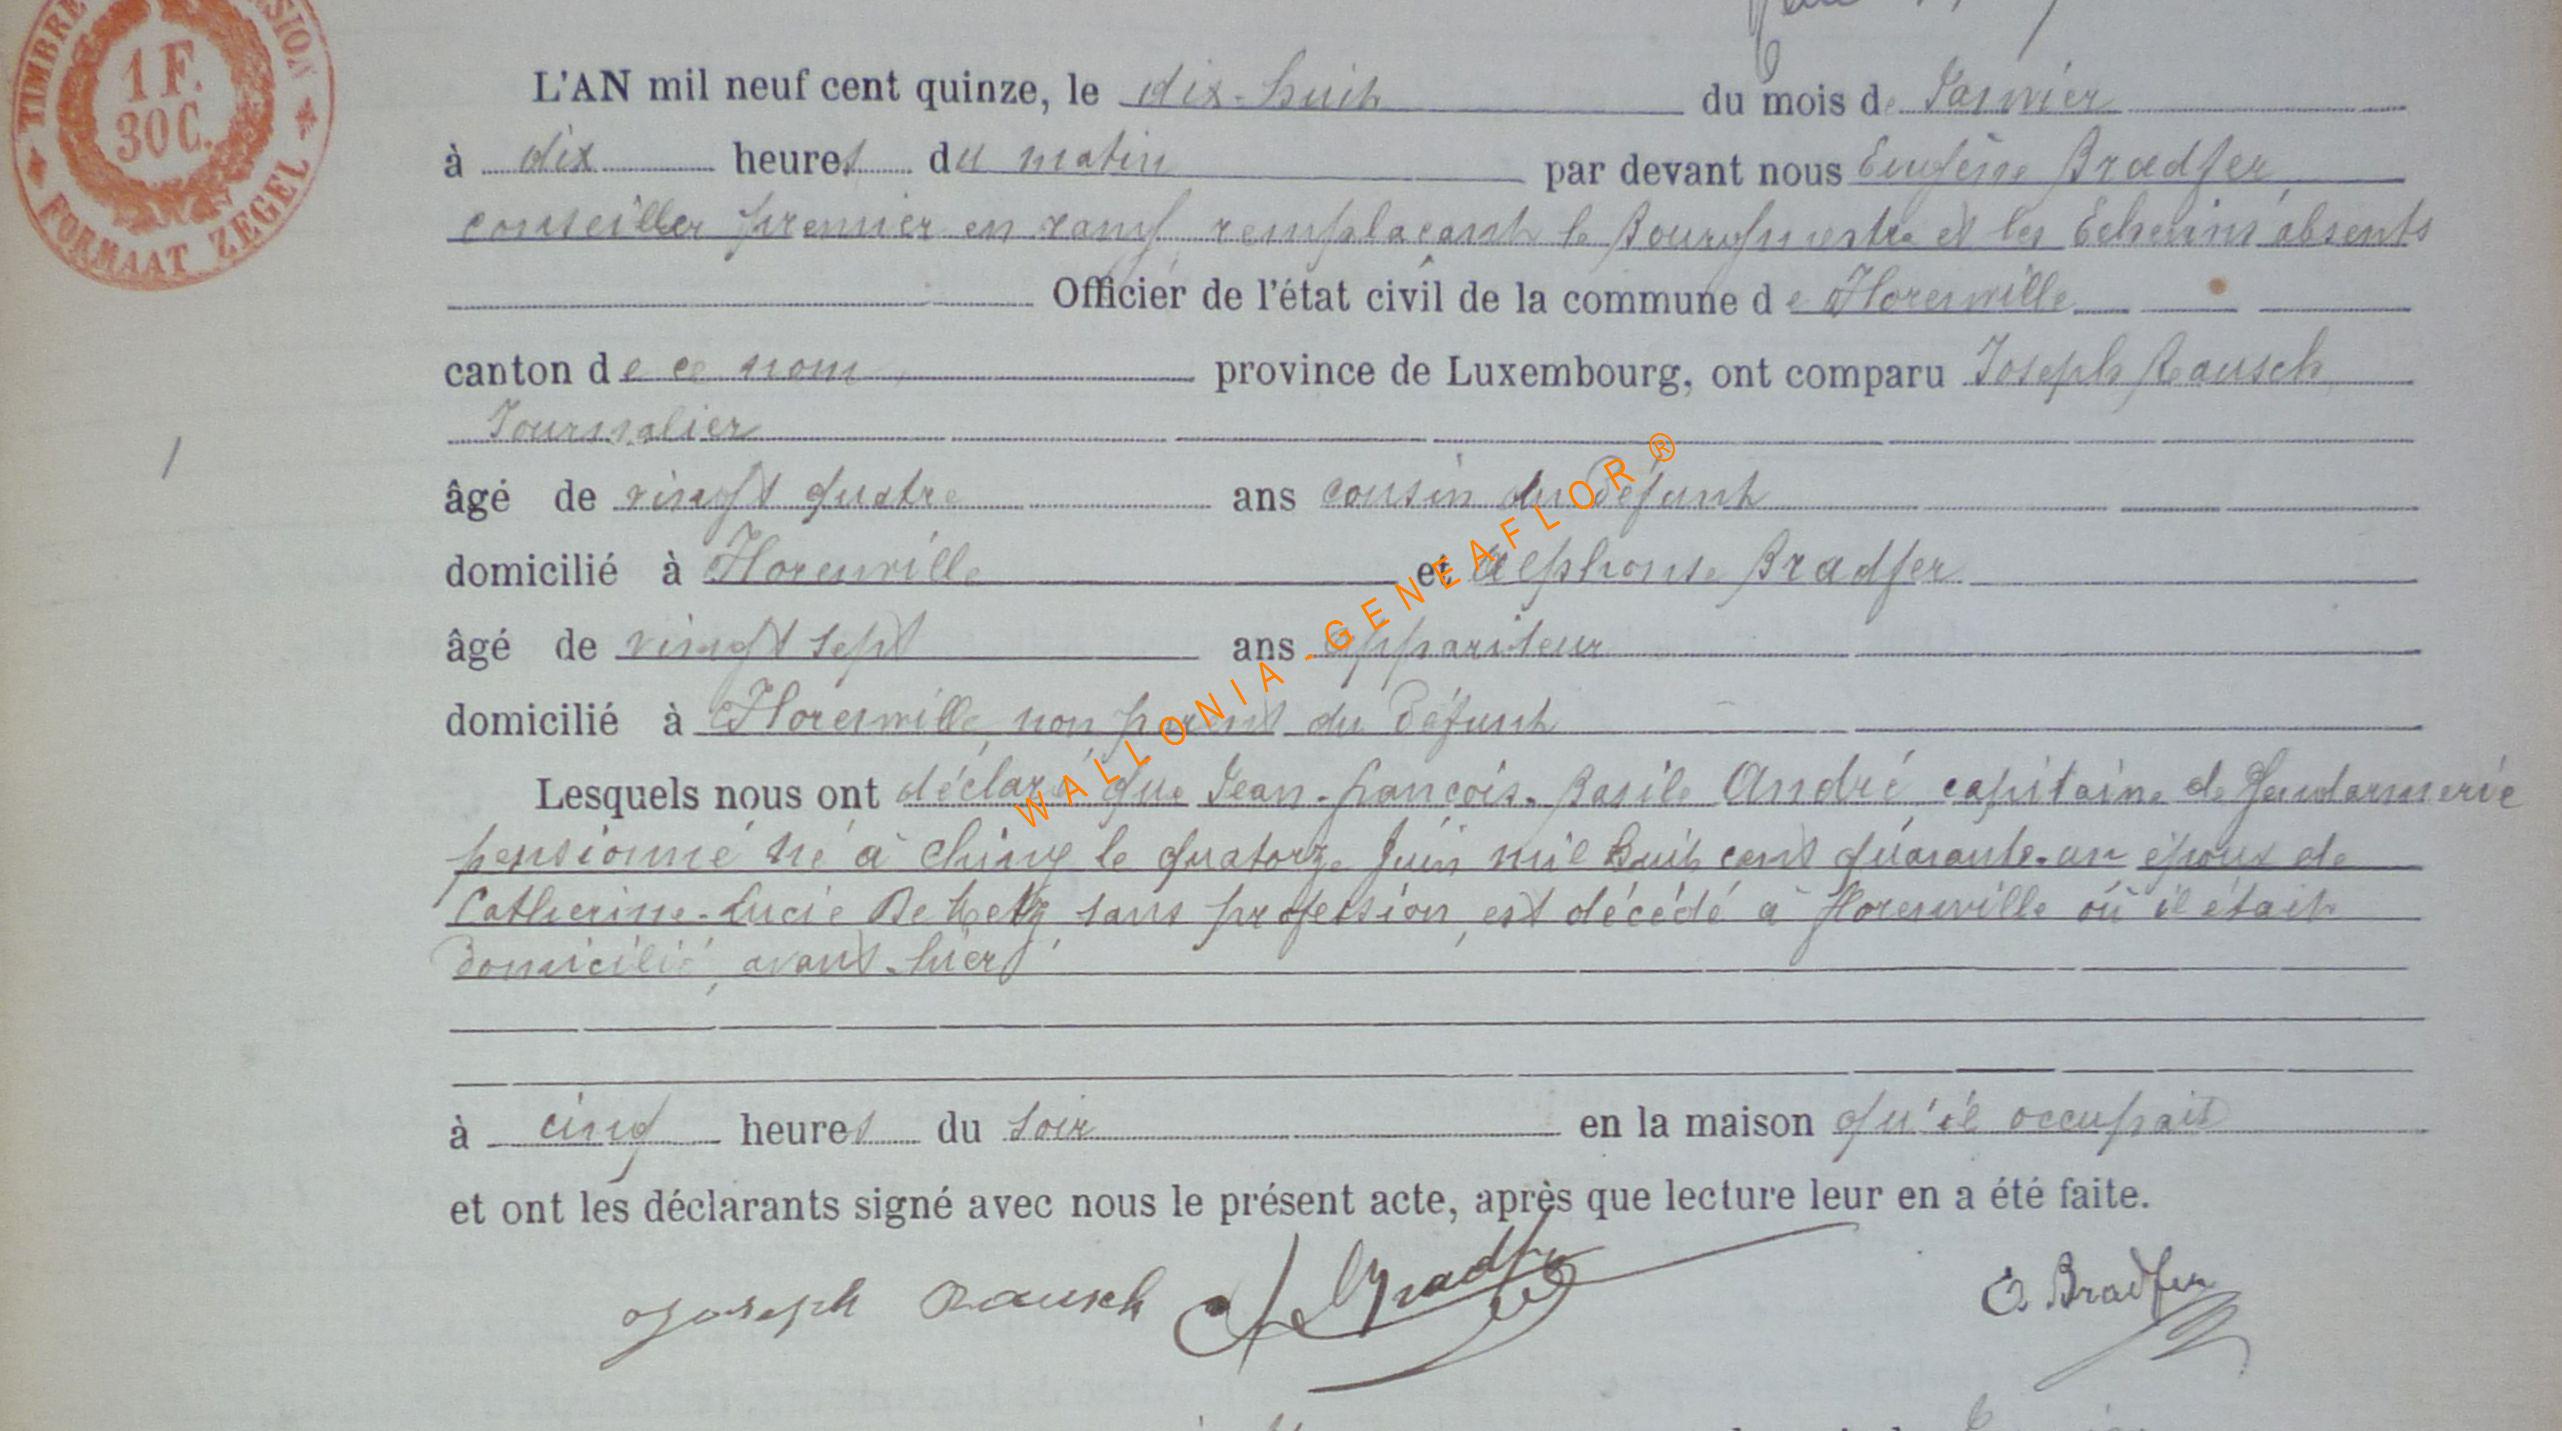 TIMBRE
SION
1 F.
30 C.
FORMAAT ZEGEL
L'AN mil neuf cent quinze, le dix-huit du mois de Janvier
à dix heures du matin par devant nous Eugène Bradfer,
conseiller premier en rang, remplaçant le Bourgmestre et les Echevins absents
Officier de l'état civil de la commune de Florenville
canton de ce nom, province de Luxembourg, ont comparu Joseph Rausch,
Journalier
1
âgé de vingt quatre ans cousin du Défunt
domicilié à Florenville et Alphonse Bradfer
âgé de vingt sept ans appariteur
domicilié à Florenville, non parent du Défunt
Lesquels nous ont déclaré que Jean-françois-Basile André, capitaine de Gendarmerie
pensionné né à Chiny le quatorze Juin mil huit cent quarante-un époux de
Catherine-Lucie sans profession, est décédé à florenville où il était
Domicilié, avant-hier
à cinq heures du soir en la maison qu'il occupait
et ont les déclarants signé avec nous le présent acte, après que lecture leur en a été faite.
Joseph Rausch A Bradfer E Bradfer
WALLONIA - GENEAFLOR ®